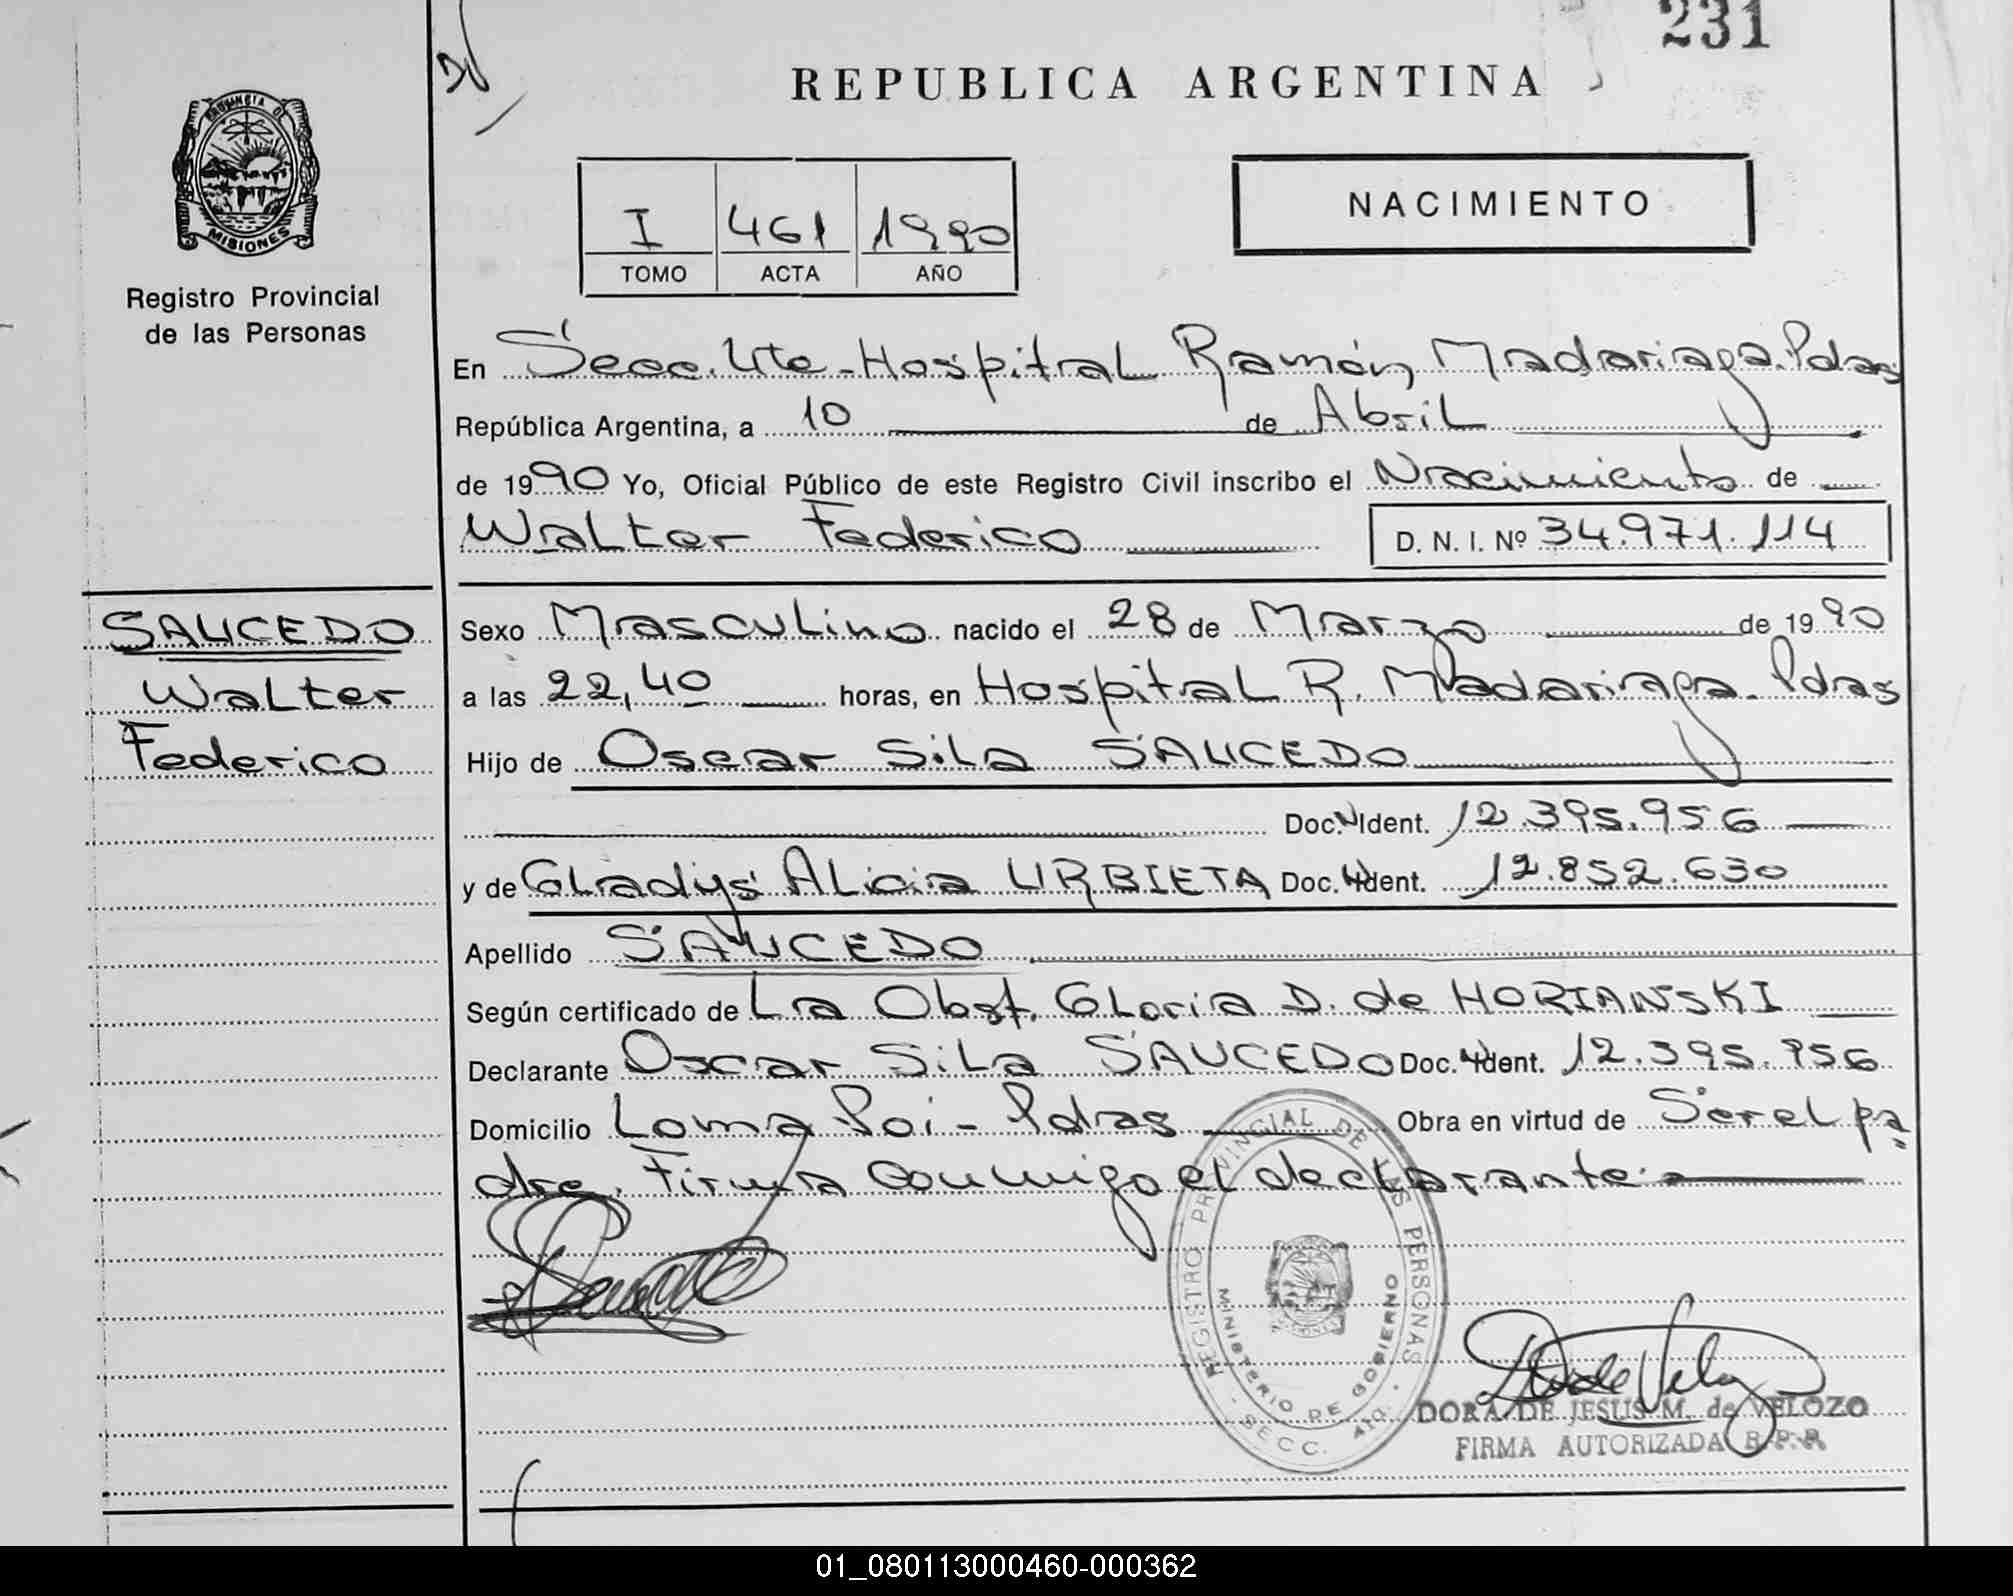 231
REPUBLICA ARGENTINA
PROVINCIA DE
MISIONES
Registro Provincial
de las Personas
NACIMIENTO
I 461 1990
TOMO ACTA AÑO
En Secc. 4te - Hospital Ramón Madariaga. Pdas
República Argentina, a 10 de Abril
de 1990 Yo, Oficial Público de este Registro Civil inscribo el Nacimiento de
Walter Federico D. N. I. Nº 34.971.114
SAUCEDO
Walter
Federico
Sexo Masculino nacido el 28 de Marzo de 1990
a las 22,40 horas, en Hospital R. Madariaga. Pdas
Hijo de Oscar Sila SAUCEDO
Doc. Ident. 12.395.956
y de Gladys Alicia URBIETA Doc. Ident. 12.852.630
Apellido SAUCEDO
Según certificado de La Obst. Gloria D. de HORIANSKI
Declarante Oscar Sila SAUCEDO Doc. Ident. 12.395.956
Domicilio Loma Poi - Pdas Obra en virtud de Ser el pa
dre. Firma conmigo el declarante.
REGISTRO PROVINCIAL DE LAS PERSONAS
MINISTERIO DE GOBIERNO
SECC. 4TA.
DORA DE JESUS M. de VELOZO
FIRMA AUTORIZADA R.P.P.
01_080113000460-000362